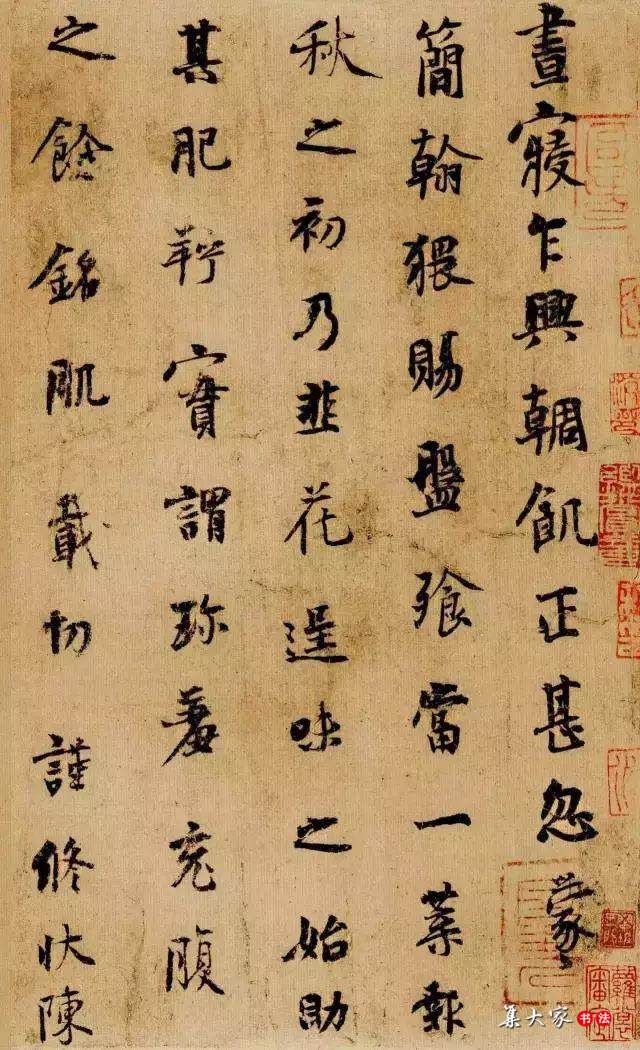 晝寢乍興輖飢正甚忽蒙
簡翰猥賜盤飧當一葉報
秋之初乃韭花逞味之始助
其肥羜實謂珍羞充腹
之餘銘肌載切謹脩狀陳
集大家书法